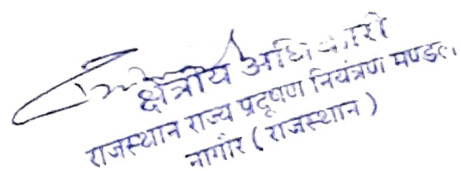 क्षेत्रीय अधिकारी
राजस्थान राज्य प्रदूषण नियंत्रण मण्डल,
नागौर ( राजस्थान )